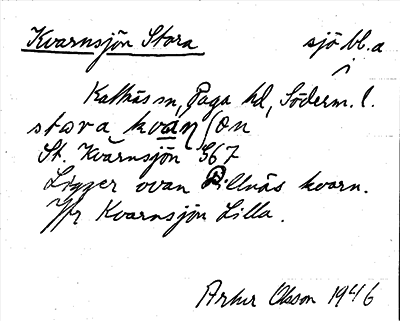 Kvarnsjön Stora sjö bl.a
i
Kattnäs sn, Daga hd, Söderm. l.
stora kvan ʃön
St. Kvarnsjön 567
Ligger ovan Lillnäs kvarn.
Jfr Kvarnsjön Lilla.
Artur Olsson 1946